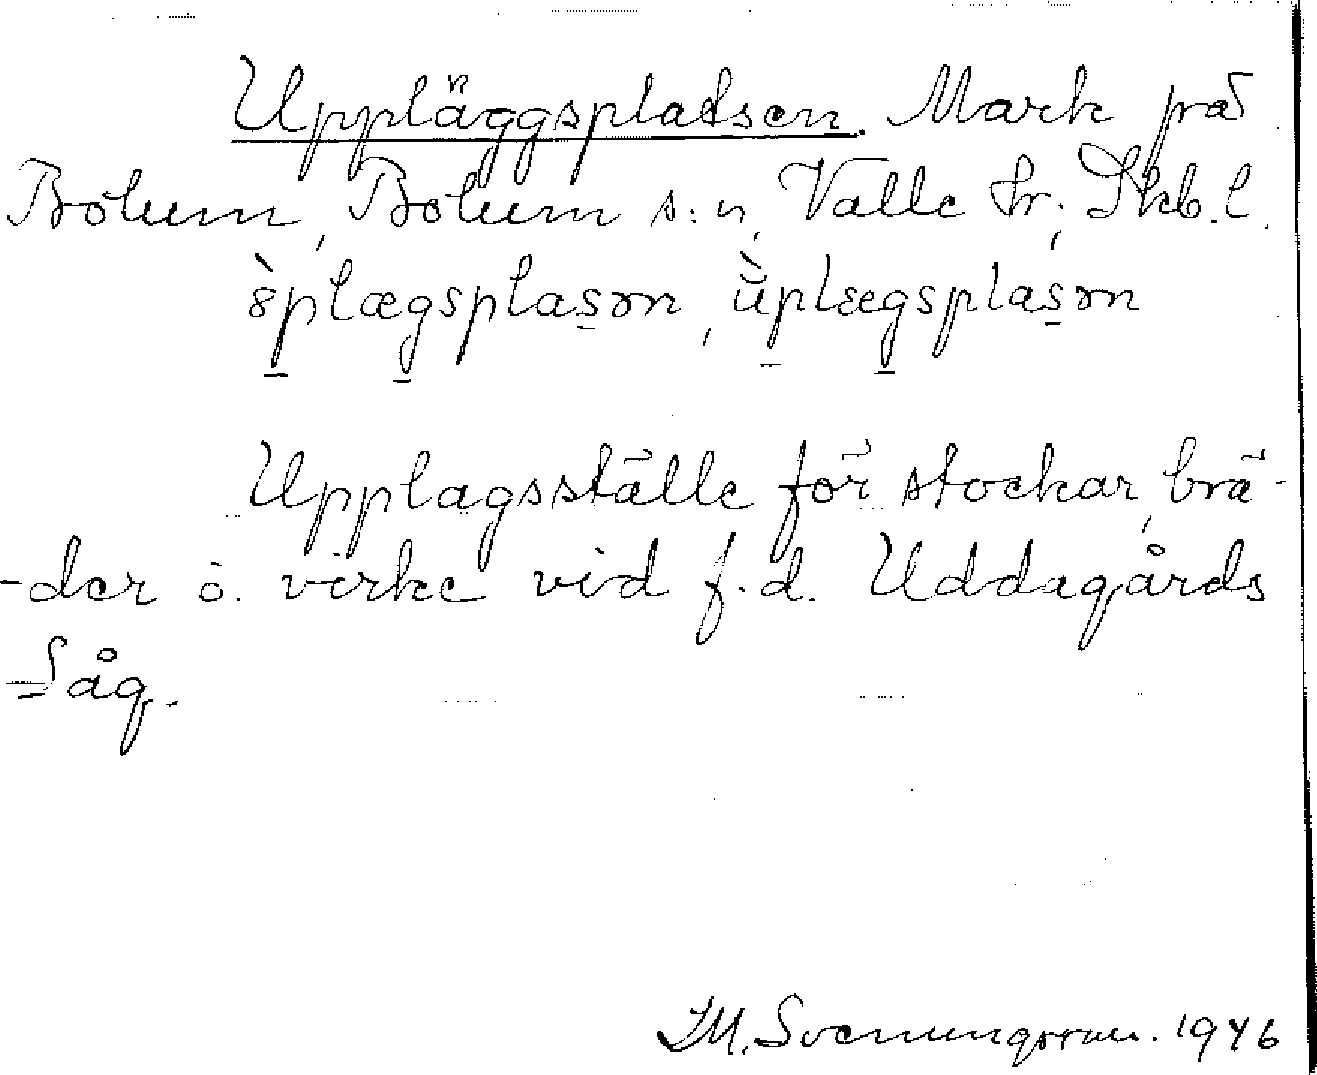 Uppläggsplatsen. Mark på
Bolum, Bolum s:n, Valle hr; Skb. l.
ùplægsplasən, ùplægsplasən
Upplagsställe för stockar, brä-
-der o. virke vid f.d. Uddagårds
Såg.
I.M. Svenungsson. 1946